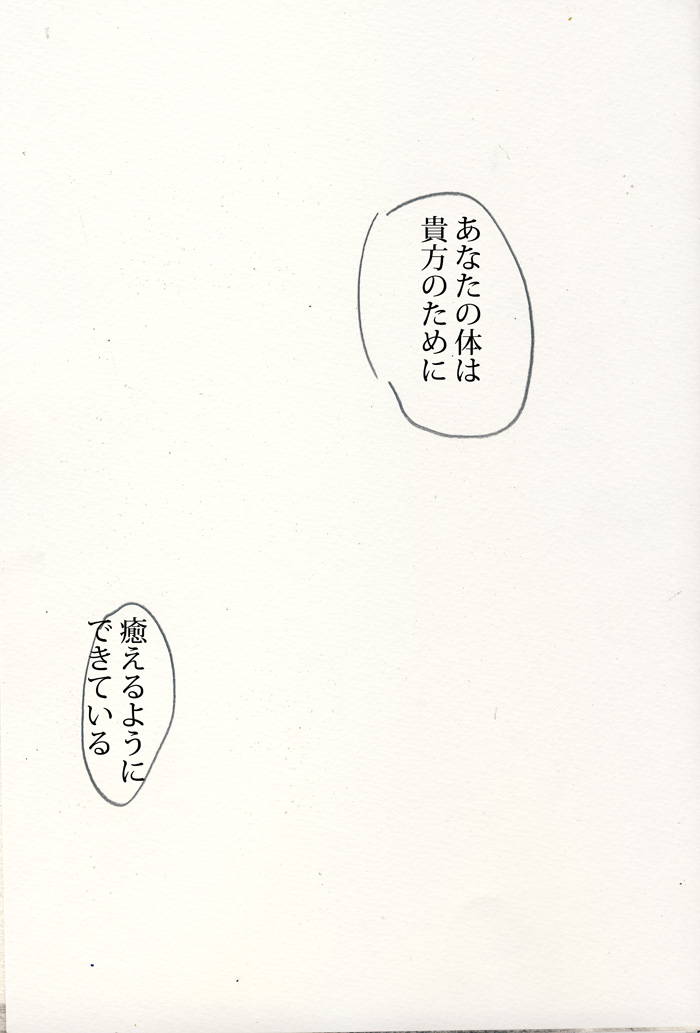 あなたの体は
貴方のために
癒えるように
できている